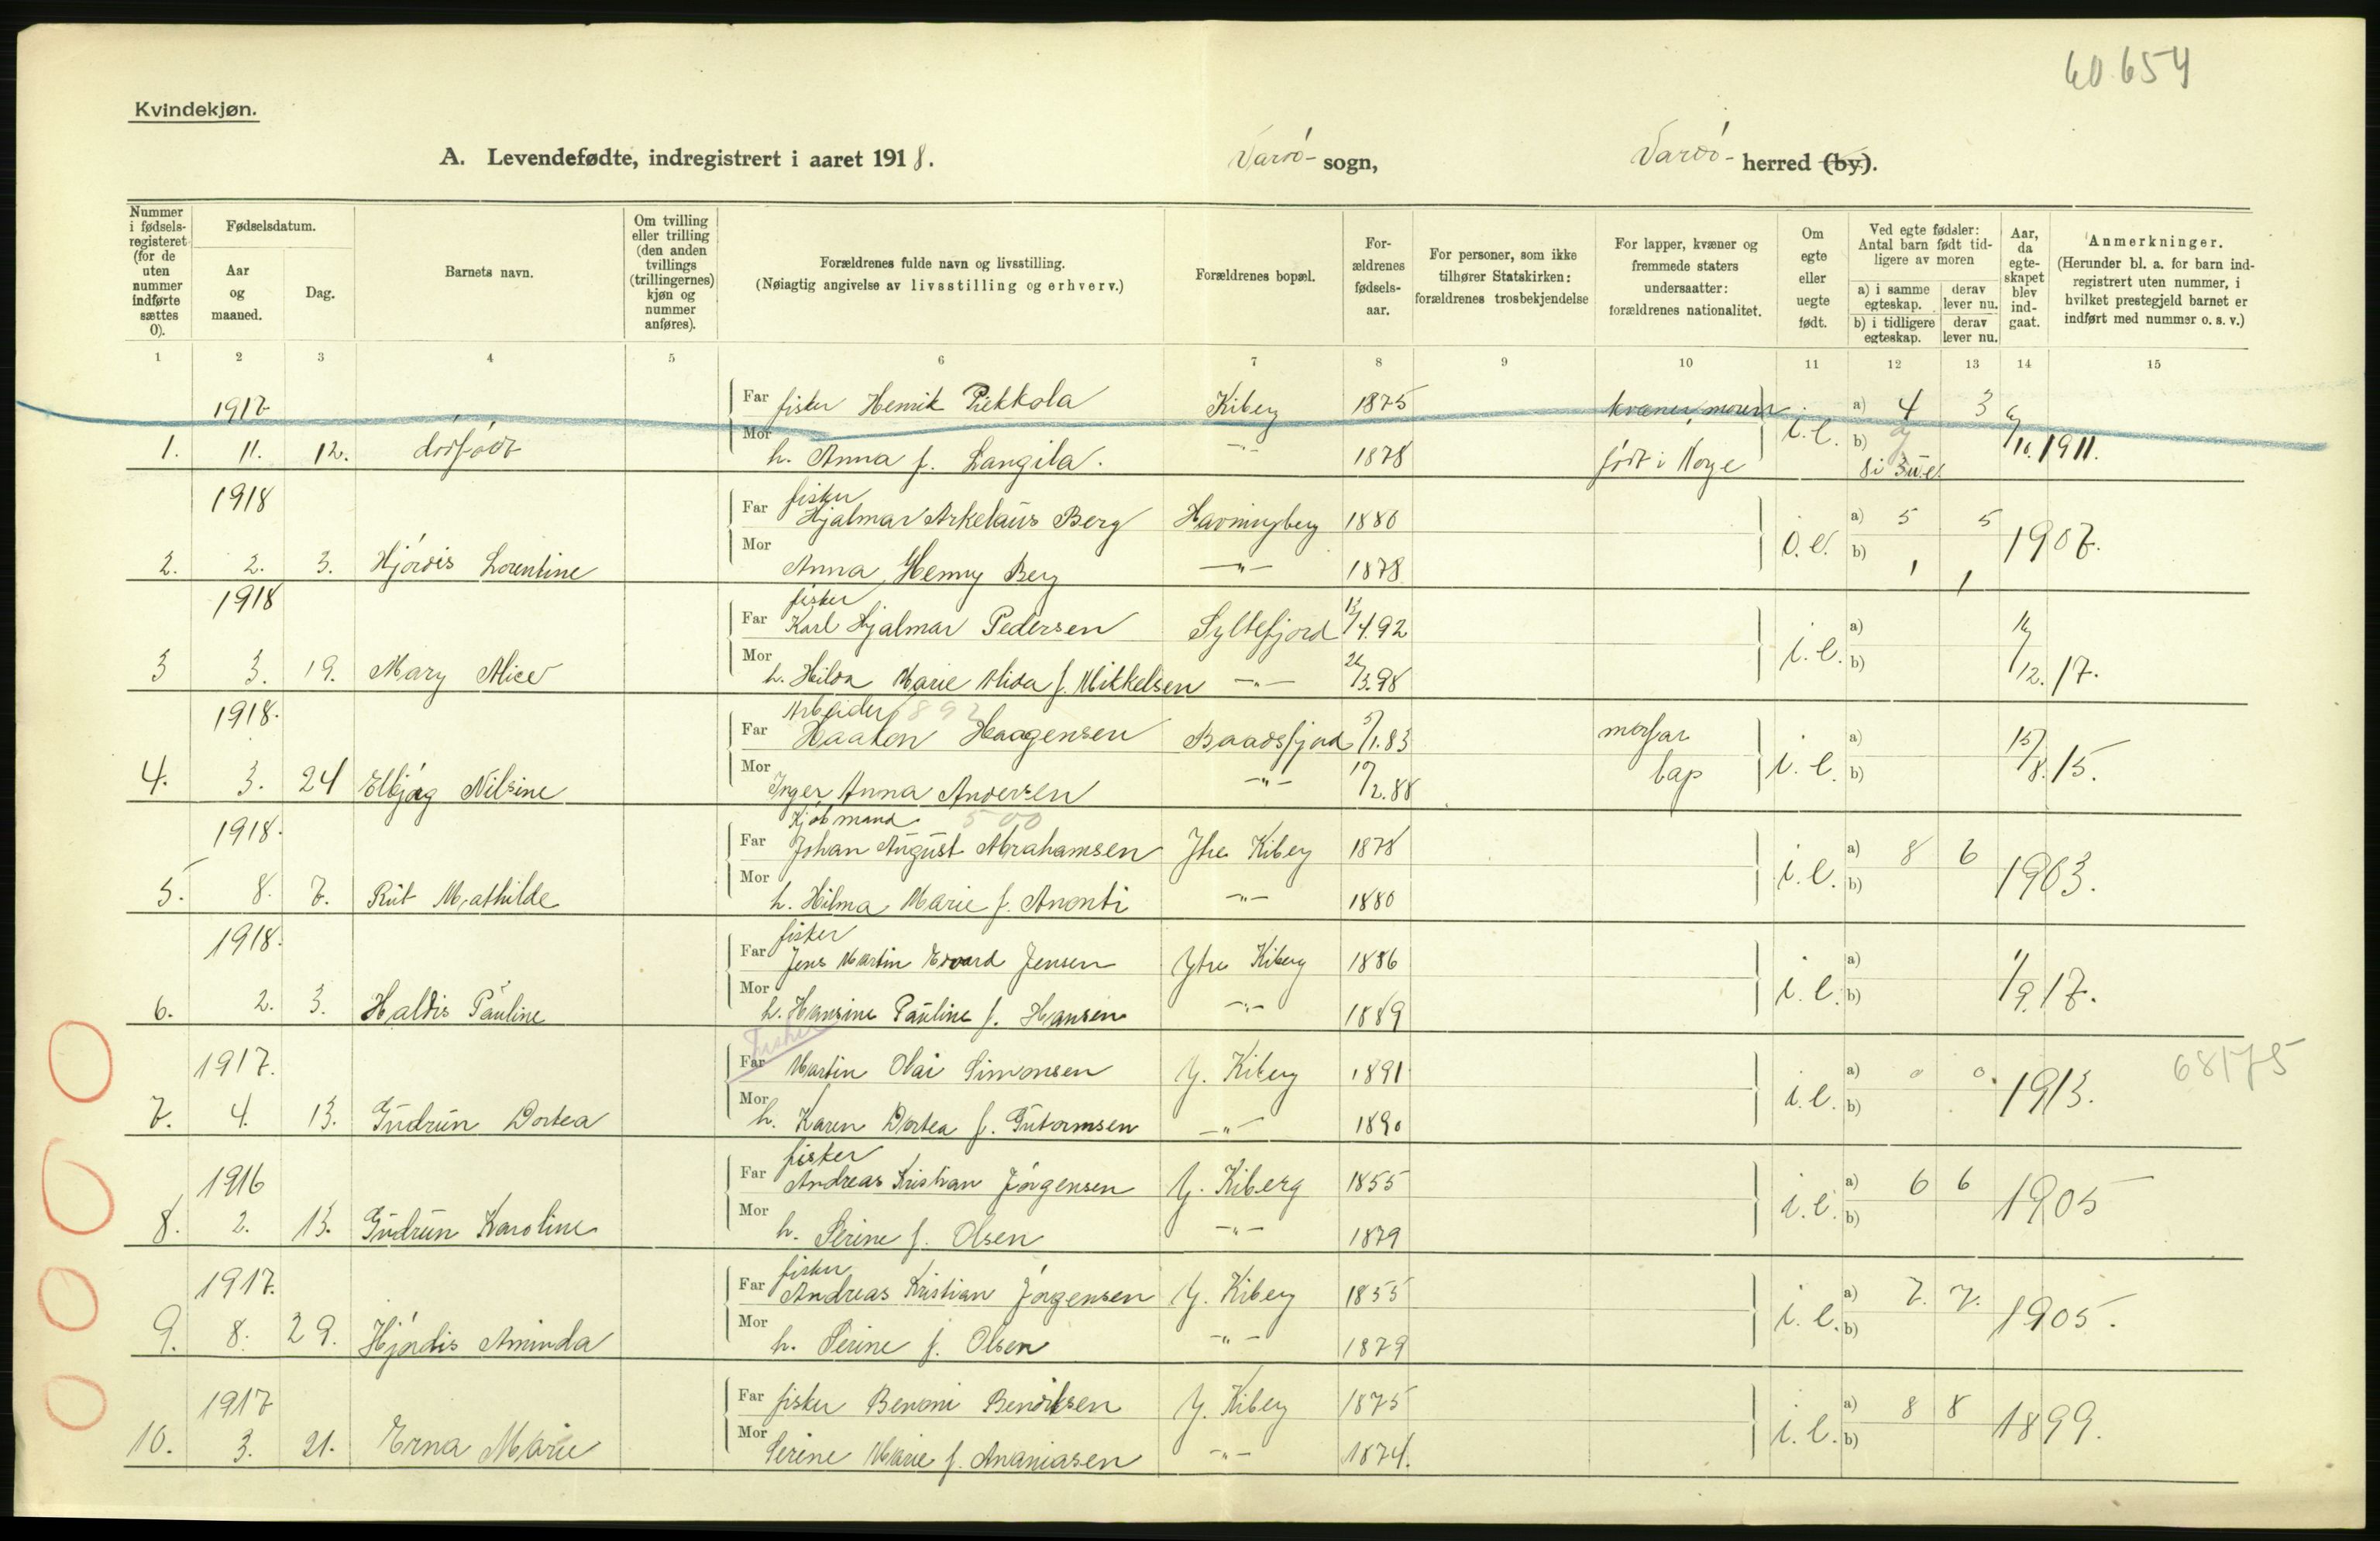 60 654
Kvindekjøn.
A. Levendefødte, indregistrert i aaret 1918. Vardö- sogn, Vardö- herred (by).
Nummer i fødsels-registeret (for de uten nummer indførte sættes 0).
Fødselsdatum.
Aar og maaned.
Dag.
Barnets navn.
Om tvilling eller trilling (den anden tvillings (trillingernes) kjøn og nummer anføres).
Forældrenes fulde navn og livsstilling.
(Nøiagtig angivelse av livsstilling og erhverv.)
Forældrenes bopæl.
For-ældrenes fødsels-aar.
For personer, som ikke tilhører Statskirken: forældrenes trosbekjendelse
For lapper, kvæner og fremmede staters undersaatter: forældrenes nationalitet.
Om egte eller uegte født.
Ved egte fødsler: Antal barn født tid-ligere av moren
a) i samme egteskap.
derav lever nu.
b) i tidligere egteskap.
derav lever nu.
Aar, da egte-skapet blev ind-gaat.
Anmerkninger.
(Herunder bl. a. for barn ind-registrert uten nummer, i hvilket prestegjeld barnet er indført med nummer o. s. v.)
1 2 3 4 5 6 7 8 9 10 11 12 13 14 15
1917 Far fisker Henrik Piekkola Kiberg 1875 kvæner, moren a) 4 3 6/
1. 11. 12. dödfödt Mor h. Anna f. Langila. -"- 1878 födt i Norge i.e. b) 10. 1911.
1918 fisker
Far Hjalmar Arkelaus Berg Havningberg 1880 a) 5 5
2. 2. 3. Hjördis Lorentine Mor Anna Henny Berg -"- 1878 b) 1 1 1907.
1918 fisker
Far Karl Hjalmar Pedersen Syltefjord 13/4.92 a)
3 3. 19. Mary Alice Mor h. Hilda Marie Alida f. Mikkelsen -"- 26/3.98 i.e. b) 16/12. 17.
1918. Arbeider 892
Far Haakon Haagensen Baadsfjord 5/1.83 morfar a)
4. 3. 24 Elbjörg Nilsine Mor Inger Anna Andersen -"- 19/2.88 lap i.e. b) 15/8. 15.
1918. Kjöbmand 500
Far Johan August Abrahamsen Ytre Kiberg 1878 a) 8 6
5. 8. 7. Rut Mathilde Mor h. Hilma Marie f. Anonti -"- 1880 i.e. b) 1903.
1918. fisker
Far Jens Martin Edvard Jensen Ytre Kiberg 1886 a)
6. 2. 3. Haldis Pauline Mor h. Hansine Pauline f. Hansen -"- 1889 i.e. b) 1/9. 17.
Fisker
1917. Far Martin Olai Simonsen Y. Kiberg 1891 a) 0 0. 68175
7. 4. 13. Gudrun Dortea Mor h. Karen Dortea f. Gutormsen -"- 1890 i.e. b) 1913.
fisker
1916 Far Andreas Kristian Jörgensen Y. Kiberg 1855 a) 6 6
8. 2. 13. Gudrun Karoline Mor h. Serine f. Olsen -"- 1879 i.e. b) 1905
fisker
1917. Far Andreas Kristian Jörgensen Y. Kiberg 1855 a) 7. 7.
9. 8. 29. Hjördis Aminda Mor h. Serine f. Olsen -"- 1879 i.e. b) 1905.
1917 Far fisker Benoni Bendiksen Y. Kiberg 1875 a) 8 8
10. 3. 21. Erna Marie Mor Serine Marie f. Ananiasen -"- 1874. i.e. b) 1899.